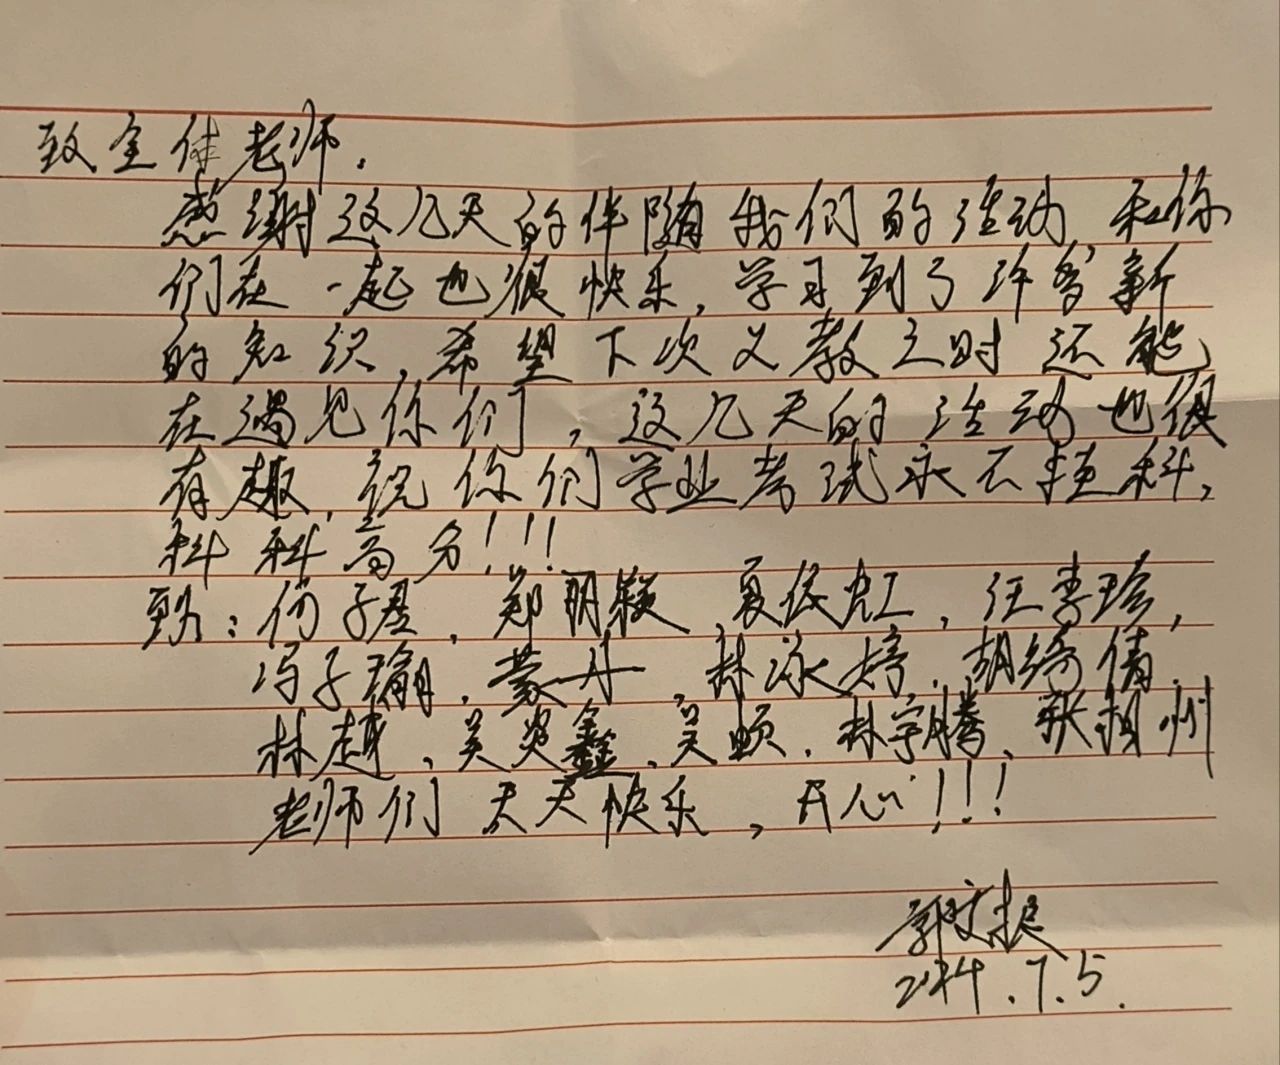 致全体老师.
感谢这几天的伴随我们的活动,和你
们在一起也很快乐,学习到了许多新
的知识,希望下次义教之时还能
在遇见你们,这几天的活动也很
有趣,祝你们学业考试永不挂科,
科科高分!!!
致:何子君,郑明颖,夏依虹,汪李珍,
冯子瑜,蒙丹,林泳婷,胡绮倩,
林越,吴炎鑫,吴顺,林宇腾,张扬州
老师们天天快乐,开心!!!
郭文振
2024.7.5.